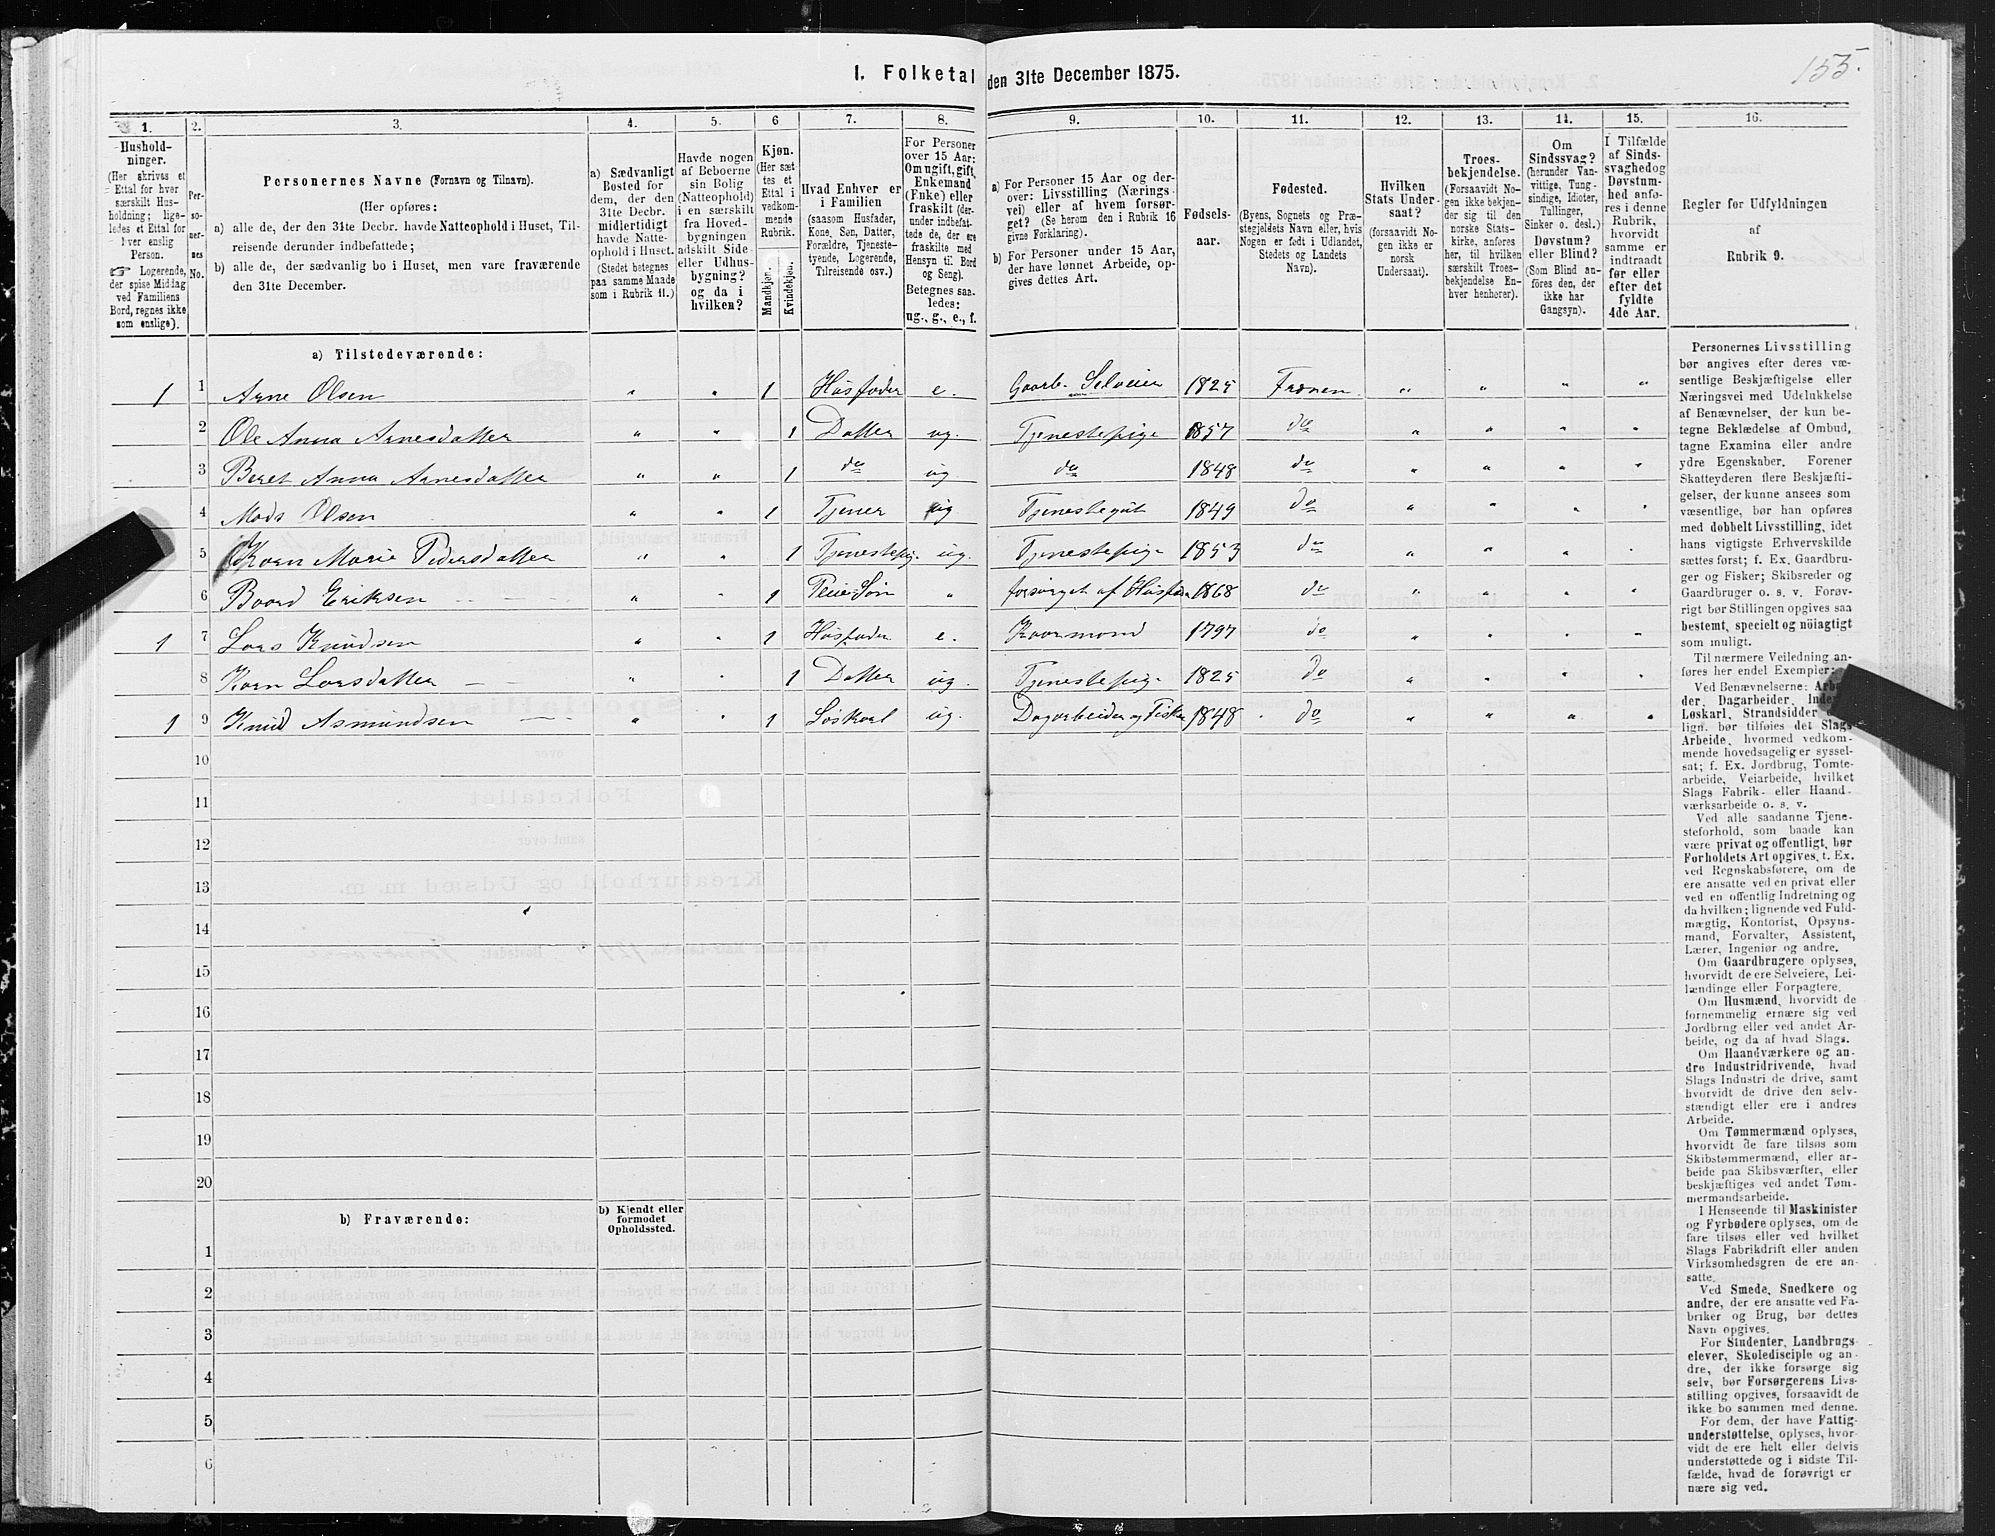 155.
I. Folketal den 31te December 1875.
1.
2.
3.
4.
5.
6
7.
8.
9.
10.
11.
12.
13.
14.
15.
16.
Hushold-
ninger.
(Her skrives et
Ettal for hver
særskilt Hus-
holdning; lige-
ledes et Ettal for
hver enslig
Person.
☞ Logerende,
der spise Middag
ved Familiens
Bord, regnes ikke
som enslige).
Per-
so-
ner-
nes
No.
Personernes Navne (Fornavn og Tilnavn).
(Her opføres:
a) alle de, der den 31te Decbr. havde Natteophold i Huset, Til-
reisende derunder indbefattede;
b) alle de, der sædvanlig bo i Huset, men vare fraværende
den 31te December.
a) Sædvanligt
Bosted for
dem, der den
31te Decbr.
midlertidigt
havde Natte-
ophold i Huset.
(Stedet betegnes
paa samme Maade
som i Rubrik 11.)
Havde nogen
af Beboerne
sin Bolig
(Natteophold)
i en særskilt
fra Hoved-
bygningen
adskilt Side-
eller Udhus-
bygning?
og da i
hvilken?
Kjøn.
(Her sæt
tes et
Ettal i
vedkom-
mende
Rubrik.
Mandkjøn.
Kvindekjøn.
Hvad Enhver er
i Familien
(saasom Husfader,
Kone, Søn, Datter,
Forældre, Tjeneste-
tyende, Logerende,
Tilreisende osv.)
For Personer
over 15 Aar:
Om ugift, gift,
Enkemand
(Enke) eller
fraskilt (der-
under indbefat-
tede de, der ere
fraskilte med
Hensyn til Bord
og Seng).
Betegnes saa-
ledes:
ug., g., e., f.
a) For Personer 15 Aar og der-
over: Livsstilling (Nærings-
vei) eller af hvem forsør-
get? (Se herom den i Rubrik 16
givne Forklaring).
b) For Personer under 15 Aar,
der have lønnet Arbeide, op-
gives dettes Art.
Fødsels-
aar.
Fødested.
(Byens, Sognets og Præ-
stegjeldets Navn eller, hvis
Nogen er født i Udlandet,
Stedets og Landets
Navn).
Hvilken
Stats Under-
saat?
(forsaavidt No-
gen ikke er
norsk
Undersaat).
Troes-
bekjendelse.
(Forsaavidt No-
gen ikke bekjen-
der sig til den
norske Stats-
kirke, anføres
her, til hvilken
særskilt Troes-
bekjendelse En-
hver henhører).
Om
Sindssvag?
(herunder Van-
vittige, Tung-
sindige, Idioter,
Tullinger,
Sinker o. desl.)
Døvstum?
eller Blind?
(Som Blind an-
føres den, der
ikke har
Gangsyn).
I Tilfælde
af Sinds-
svaghed og
Døvstum-
hed anfø-
res i denne
Rubrik,
hvorvidt
samme er
indtraadt
før eller
efter det
fyldte
4de Aar.
Regler for Udfyldningen
af
Rubrik 9.
a) Tilstedeværende:
1 1 Arne Olsen " " 1 Husfader e. Gaardb. Selveier 1825 Frænen " " " "
2 Ole Anna Arnesdatter " " 1 Datter ug. Tjenestepige 1857 do " " " "
3 Beret Anna Arnesdatter " " 1 do ug. do 1848 do " " " "
4 Mads Olsen " " 1 Tjener ug Tjenestegut 1849 do " " " "
5 Karn Marie Pedersdatter " " 1 Tjenestepig. ug. Tjenestepige 1853 do " " " "
6 Baard Eriksen " " 1 Pleie Søn " forsørget af Husfad. 1868 do " " " "
1 7 Lars Knudsen " " 1 Husfader e. Kaarmand 1797 do " " " "
8 Karn Larsdatter " " 1 Datter ug. Tjenestepige 1825 do " " " "
1 9 Knud Asmundsen " " 1 Løskarl ug. Dagarbeider og Fisker 1848 do " " " "
10
11
12
13
14
15
16
17
18
19
20
b) Fraværende:
b) Kjendt eller
formodet
Opholdssted.
1
2
3
4
5
6
Personernes Livsstilling
bør angives efter deres væ-
sentlige Beskjæftigelse eller
Næringsvei med Udelukkelse
af Benævnelser, der kun be-
tegne Beklædelse af Ombud,
tagne Examina eller andre
ydre Egenskaber. Forener
Skatteyderen flere Beskjæfti-
gelser, der kunne ansees som
væsentlige, bør han opføres
med dobbelt Livsstilling, idet
hans vigtigste Erhvervskilde
sættes først; f. Ex. Gaardbru-
ger og Fisker; Skibsreder og
Gaardbruger o. s. v. Forøv-
rigt bør Stillingen opgives saa
bestemt, specielt og nöiagtigt
som muligt.
Til nærmere Veiledning an-
føres her endel Exempler:
Ved Benævnelserne: Arbei-
der, Dagarbeider, Inder-
Løskarl, Strandsidder
lign. bør tilføies det Slags
Arbeide, hvormed vedkom-
mende hovedsagelig er syssel-
sat; f. Ex. Jordbrug, Tomte-
arbeide, Veiarbeide, hvilket
Slags Fabrik- eller Haand-
værksarbeide o. s. v.
Ved alle saadanne Tjene-
steforhold, som baade kan
være privat og offentligt, bør
Forholdets Art opgives, t. Ex.
ved Regnskabsførere, om de
ere ansatte ved en privat eller
ved en offentlig Indretning og
da hvilken; lignende ved Fuld-
mægtig, Kontorist, Opsyns-
mand, Forvalter, Assistent,
Lærer, Ingeniør og andre.
Om Gaardbrugere oplyses,
hvorvidt de ere Selveiere, Lei-
lændinge eller Forpagtere.
Om Husmænd, hvorvidt de
fornemmelig ernære sig ved
Jordbrug eller ved andet Ar-
beide, og da af hvad Slags.
Om Haandværkere og an-
dre Industridrivende, hvad
Slags Industri de drive, samt
hvorvidt de drive den selv-
stændigt eller ere i andres
Arbeide.
Om Tømmermænd oplyses,
hvorvidt de fare tilsøs som
Skibstømmermænd, eller ar-
beide paa Skibsværfter, eller
beskjæftiges ved andet Tøm-
mermandsarbeide.
I Henseende til Maskinister
og Fyrbødere oplyses, om de
fare tilsøs eller ved hvilket
Slags Fabrikdrift eller anden
Virksomhedsgren de ere an-
satte.
Ved Smede, Snedkere og
andre, der ere ansatte ved Fa-
briker og Brug, bør dettes
Navn opgives.
For Studenter, Landbrugs-
elever, Skoledisciple og an-
dre, der ikke forsørge sig
selv, bør Forsørgerens Livs-
stilling opgives, forsaavidt de
ikke bo sammen med denne.
For dem, der have Fattig-
understøttelse, oplyses, hvor-
vidt de ere helt eller delvis
understøttede og i sidste Til-
fælde, hvad de forøvrigt er
nære sig ved.